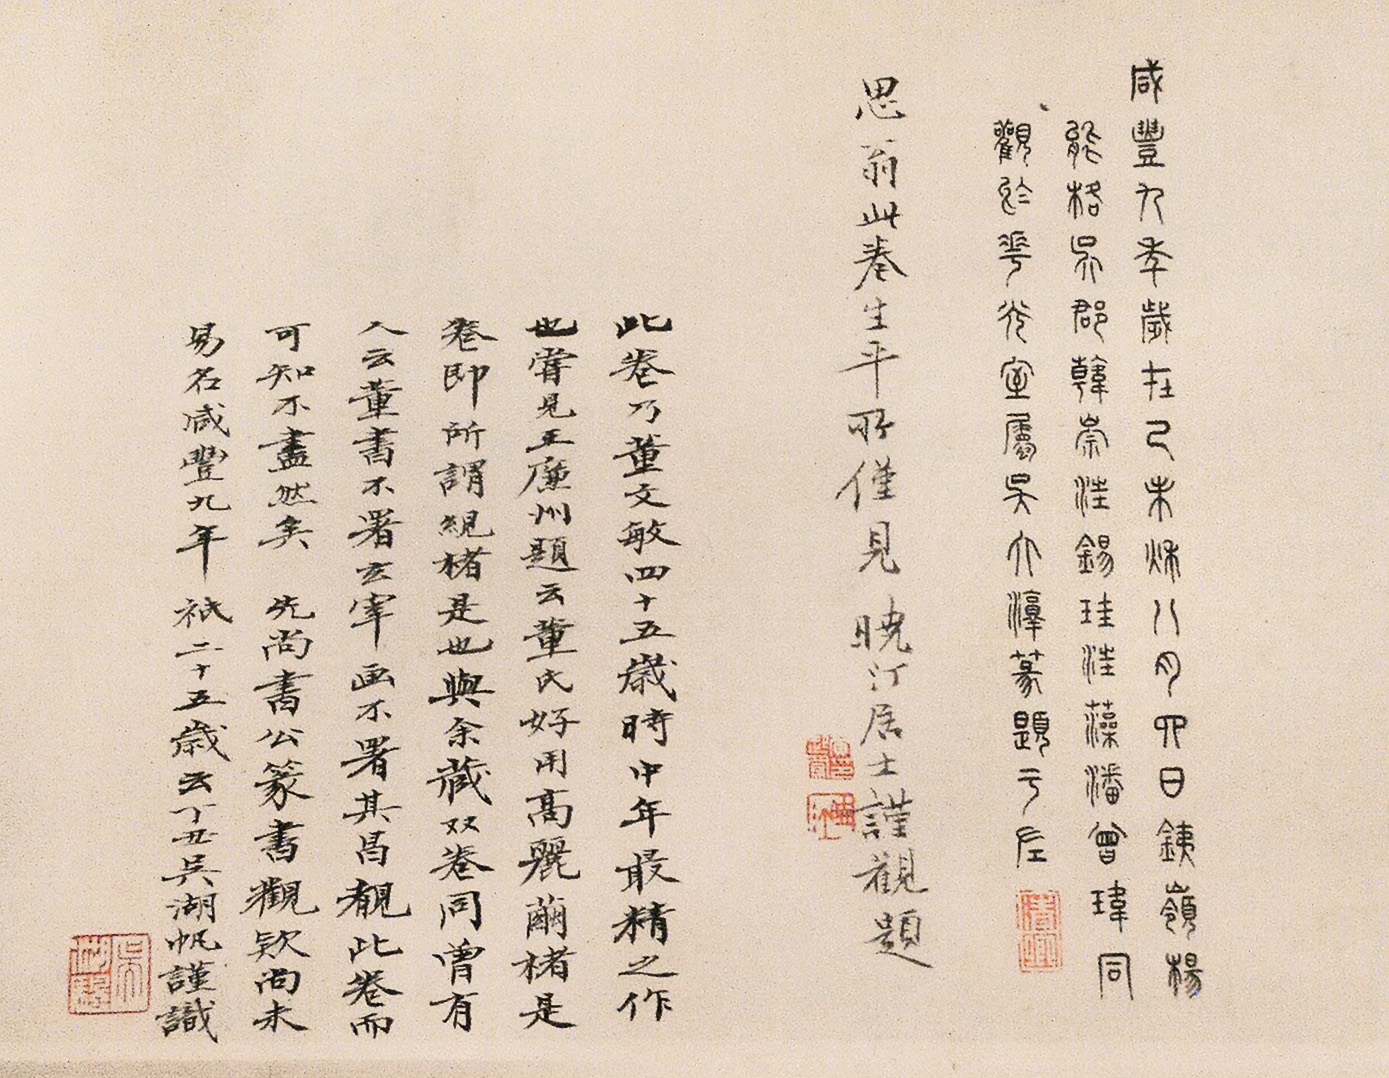 咸豐九年歲在己未秌八月四日鐵嶺楊
能格吳郡韓崇汪錫珪汪藻潘曾瑋同
觀於琴 室屬吳大淳篆題于左
思翁此卷生平所僅見 曉汀居士謹觀題
此卷乃董文敏四十五歲時中年最精之作
也嘗見王廉州題云董氏好用高麗繭楮是
卷即所謂絸楮是也與余藏双卷同曾有
人云董書不署玄宰画不署其昌覩此卷而
可知不盡然矣 先尚書公篆書觀欵尚未
易名咸豐九年 祇二十五歲云丁丑吳湖帆謹識